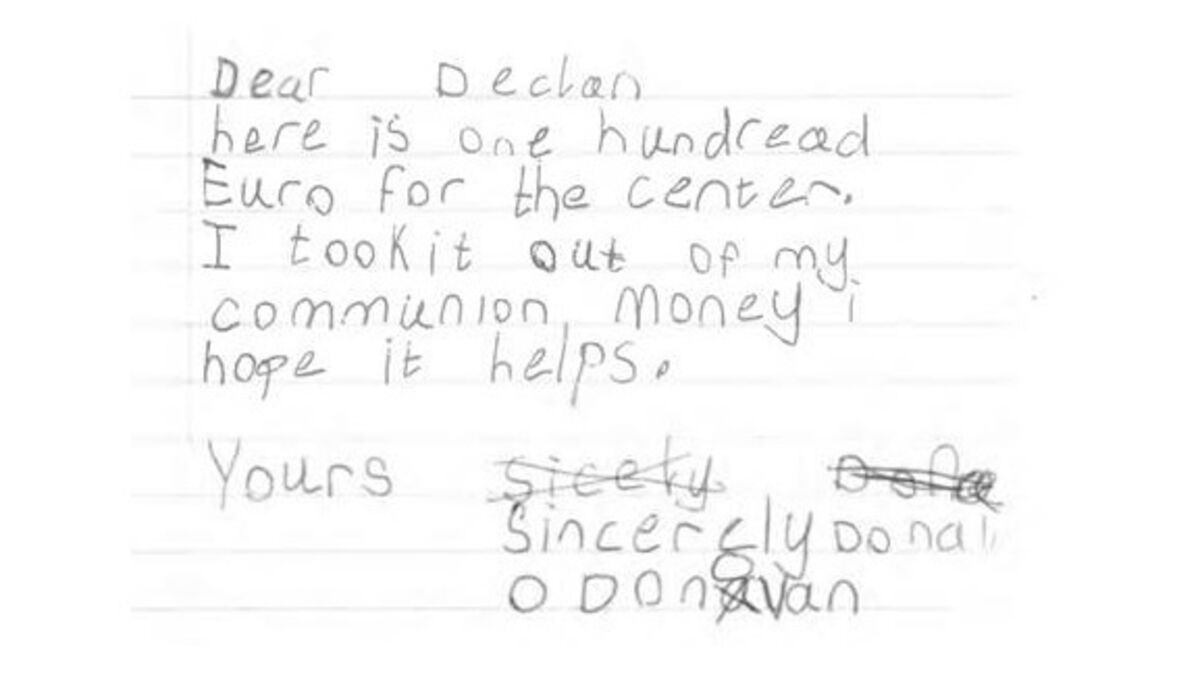 Dear Declan
here is one hundread
Euro for the center.
I took it out of my
communion money i
hope it helps.
Yours sicely
Sincerely Donal
O Donovan